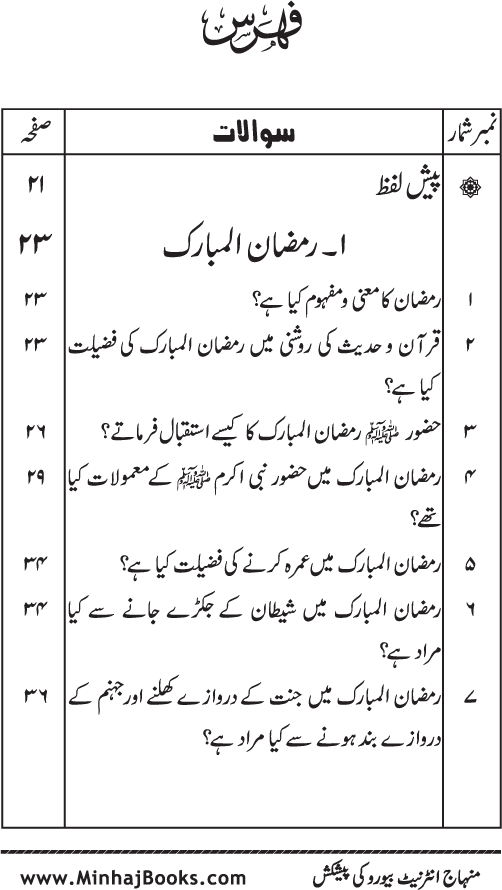 فہرس
نمبر شمار سوالات صفحہ
پیش لفظ ۲۱
۱۔ رمضان المبارک ۲۳
۱ رمضان کا معنی و مفہوم کیا ہے؟ ۲۳
۲ قرآن و حدیث کی روشنی میں رمضان المبارک کی فضیلت ۲۳
کیا ہے؟
۳ حضور ﷺ رمضان المبارک کا کیسے استقبال فرماتے؟ ۲۶
۴ رمضان المبارک میں حضور نبی اکرم ﷺ کے معمولات کیا ۲۹
تھے؟
۵ رمضان المبارک میں عمرہ کرنے کی فضیلت کیا ہے؟ ۳۴
۶ رمضان المبارک میں شیطان کے جکڑے جانے سے کیا ۳۴
مراد ہے؟
۷ رمضان المبارک میں جنت کے دروازے کھلنے اور جہنم کے ۳۶
دروازے بند ہونے سے کیا مراد ہے؟
منہاج انٹرنیٹ بیورو کی پیشکش www.MinhajBooks.com